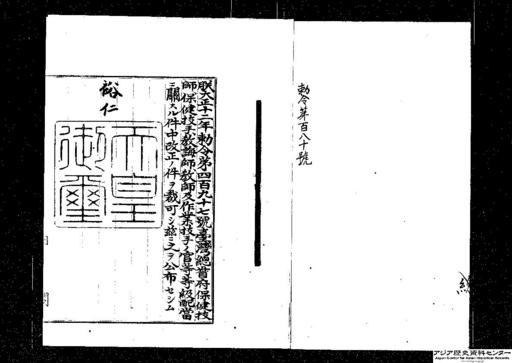 勅令第百八十號
朕大正十二年勅令第四百九十七號臺灣總督府保健技
師保健技手教誨師教師及作業技手ノ官等等級配當
ニ關スル件中改正ノ件ヲ裁可シ茲ニ之ヲ公布セシム
裕仁
天皇
御璽
アジア歴史資料センター
Japan Center for Asian Historical Records